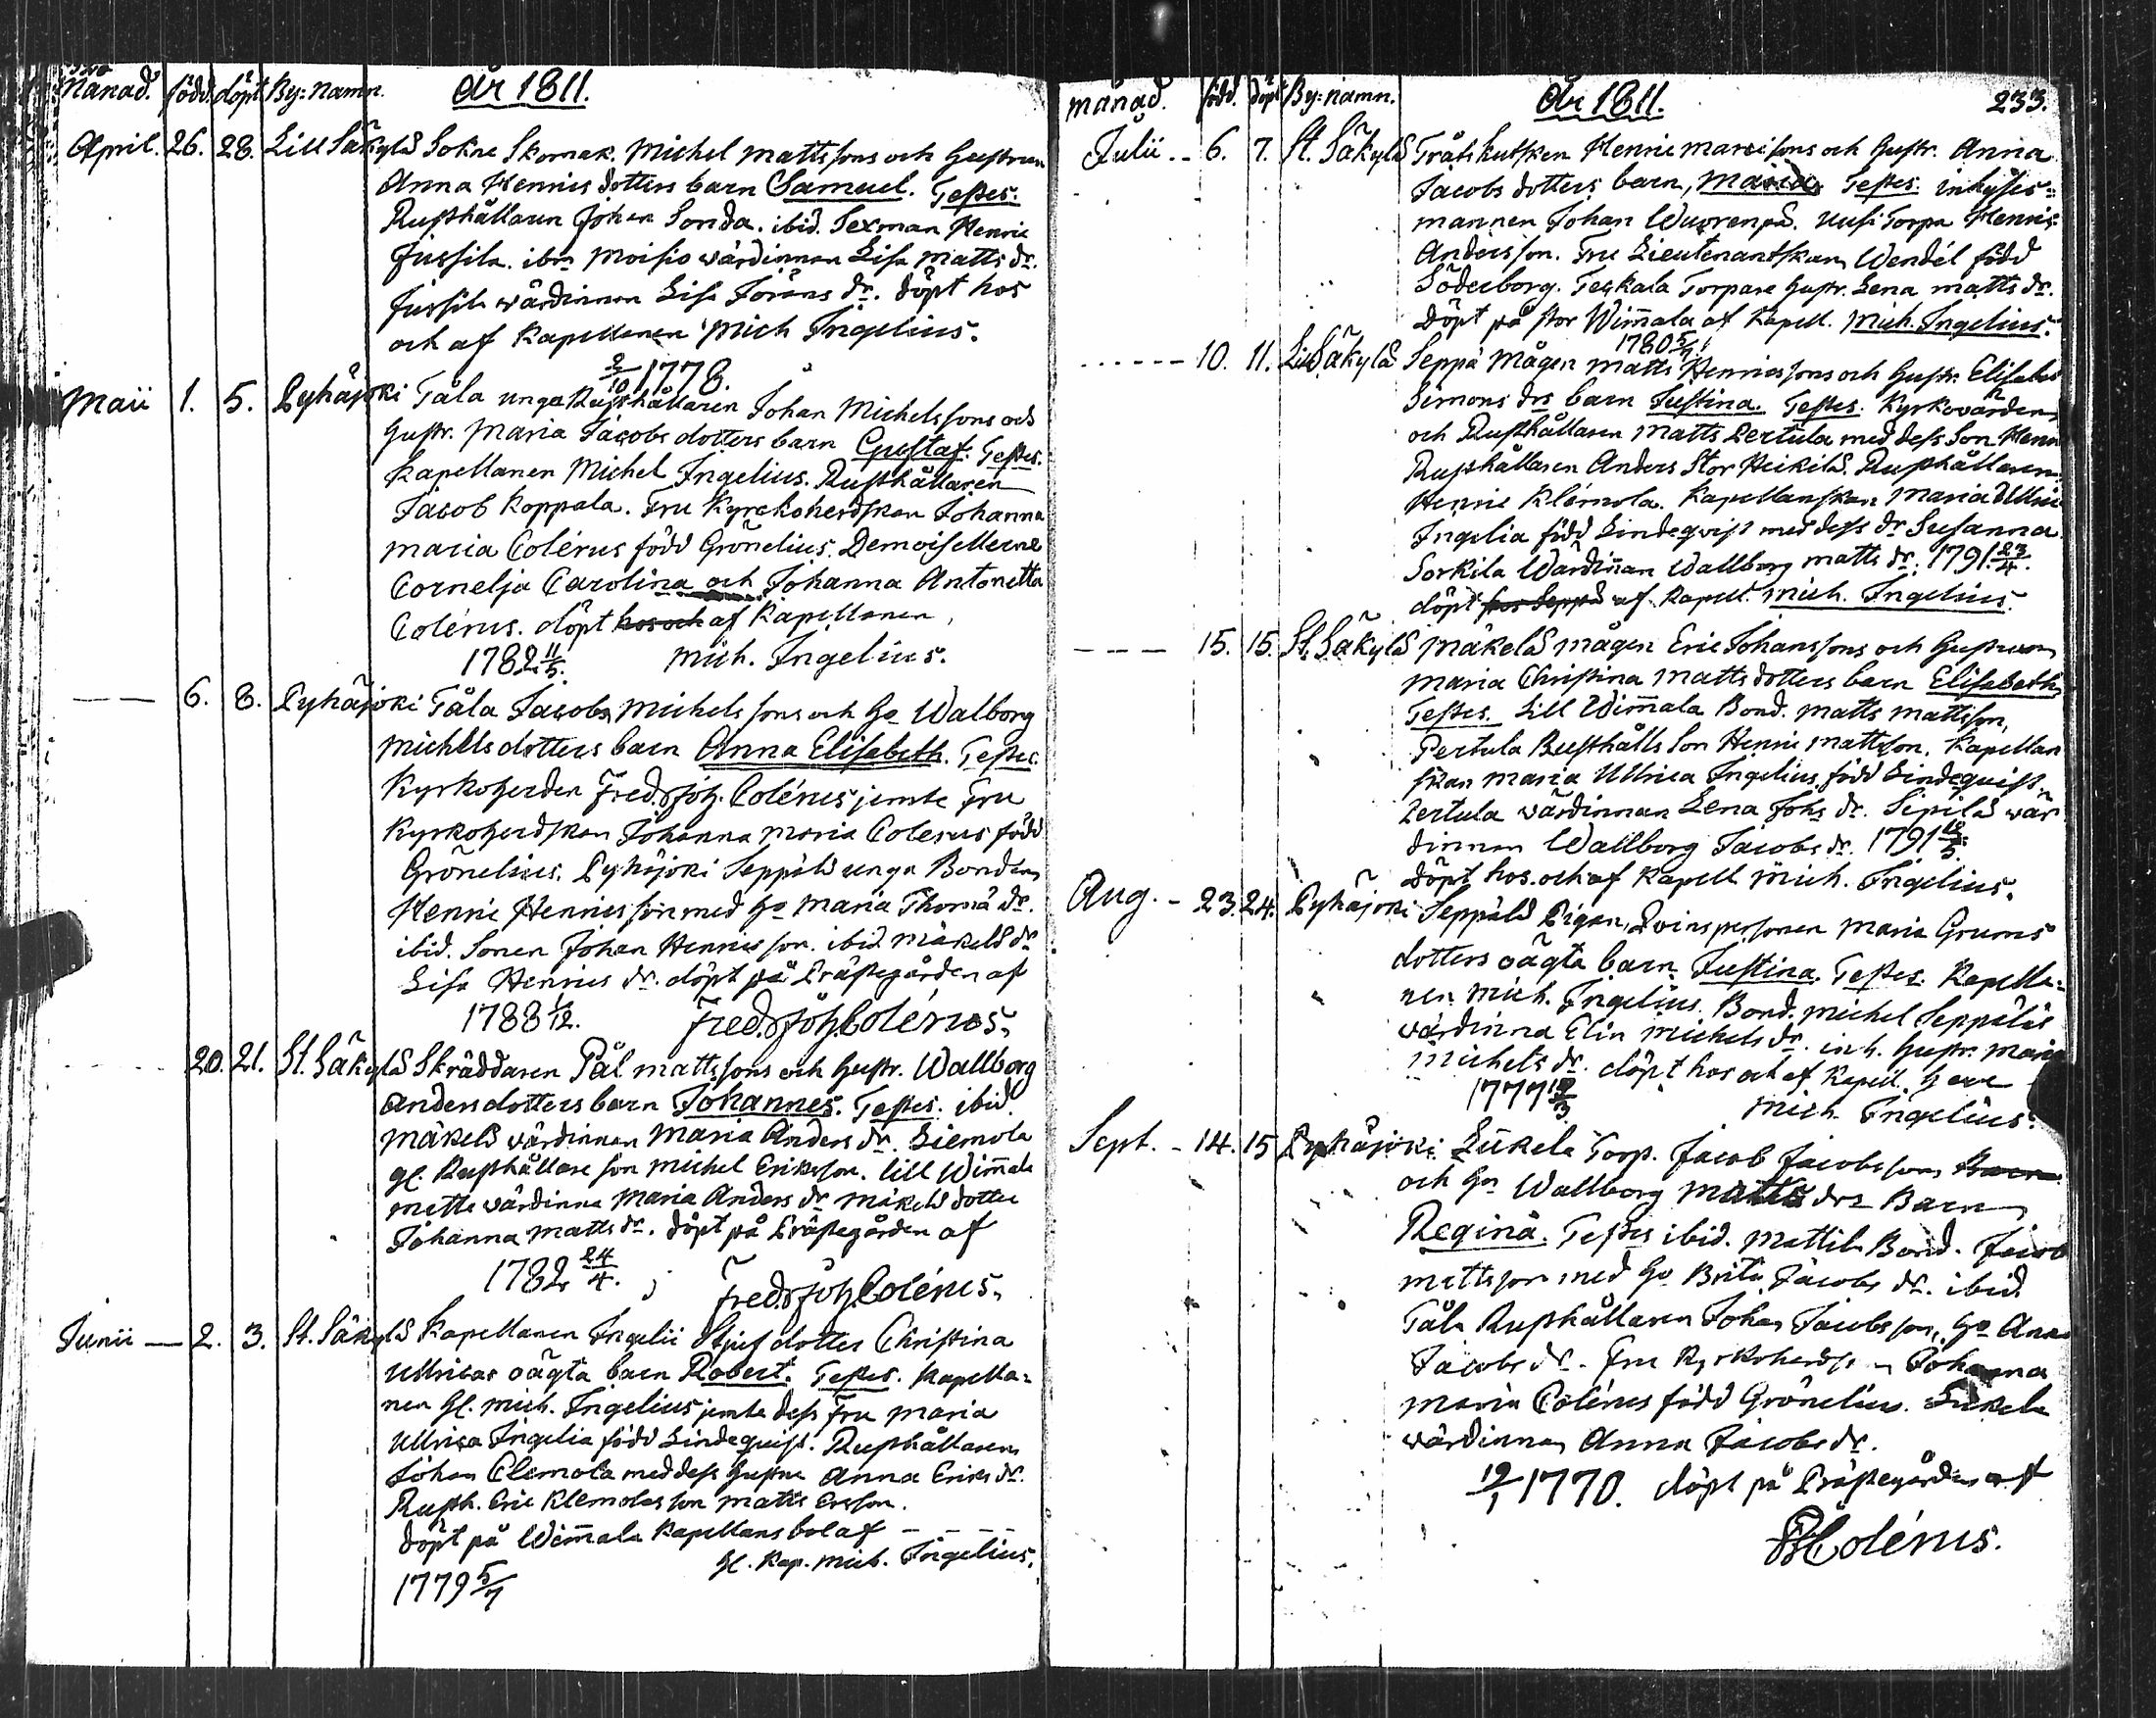 Månad. född. döpt By: namn. År 1811.
April. 26. 28. Lill Säkylä Sokne Skomak. Michel Mattssons och Hustrun
Anna Henricsdotters barn Samuel. Testes.
Rusthållaren Johan Sonda. ibid. Sexman Henric
Jussila. ibm Moisio wärdinnan Lisa Matts dr.
Jussila wärdinnan Lisa Jöräns dr. döpt hos
och af Kapellanen Mich Ingelius.
2/10 1778.
Maii 1. 5. Pyhäjoki Tåla unga Rusthållaren Johan Michelssons och
Hustr. Maria Jacobs dotters barn Gustaf. Testes.
Kapellanen Michel Ingelius. Rusthållaren
Jacob Koppala. Fru Kyrckoherdskan Johanna
Maria Colérus född Grönelius. Demoisellerne
Cornelja Carolina och Johanna Antonetta
Colérus. döpt hos och af Kapellanen
1782 11/5. Mich. Ingelius.
6. 8. Pyhäjoki Tåla Jacobs Michelssons och Ho Walborg
Michels dotters barn Anna Elisabeth. Testes.
Kyrkoherden Fred. Joh. Colérus jemte Fru
Kyrkoherdskan Johanna Maria Colerus född
Grönelius. Pyhäjoki Seppälä unga Bonden
Henric Henricsson med Ho Maria Thomä dr.
ibid. Sonen Johan Henricsson. ibid Mäkelä dr
Lisa Henrics dr. döpt på Prästegården af
1788 1/12. Fred. Joh. Colérus.
20. 21. St. Säkylä Skräddaren Pål Mattssons och Hustr. Wallborg
Andersdotters barn Johannes. Testes. ibid.
Mäkelä wärdinnan Maria Anders dr. Liemola
gl. Rusthållare son Michel Ericsson. Lill Wim̄ala
Matts wärdinna Maria Anders dr Mäkelä dotter
Johanna Matts dr. döpt på Prästegården af
1782 24/4. Fred. Joh. Colérus.
Junii 2. 3. St. Säkylä Kapellanen Ingelii Stjuf dotter Christina
Ullricas oägta barn Robert. Testes. Kapella=
nen Gl. Mich. Ingelius jemte dess Fru Maria
Ullrica Ingelia född Lindequist. Rusthållaren
Johan Clemola med dess Hustru Anna Erics dr.
Rusth. Eric Klemolas son Matts Ersson.
döpt på Wim̄ala Kapellans bol af
Gl. Kap. Mich. Ingelius.
1779 5/7
Månad. född. döpt By: namn. År 1811. 233.
Julii 6. 7. St. Säkylä Henric Marcissons och Hustr. Anna
Jacobs dotters barn, Maria. Testes. inhyses=
mannen Johan på. Uusi Torpa Henric
Andersson. Fru Lieutenantskan Wendél född
Söderborg. Teskala Torpare Hustr. Lena Matts dr.
Döpt på Stor Wim̄ala af Kapell. Mich. Ingelius.
1780 5/7
10. 11. Lill Säkylä Seppä Mågen Matts Henricssons och Hustr. Elisabet
Simons drs barn Justina. Testes. Kyrkovärden
och Rusthållaren Matts Pertula med dess Son Henric
Rusthållaren Anders Stor Heikilä. Rusthållaren
Henric Klémola. Kapellanskan Maria Ullrica
Ingelia född Lindeqvist med dess dr Susanna
Sorkila Wärdin̄an Wallborg Matts dr. 1791. 23/4.
döpt hos Seppä af Kapell. Mich. Ingelius
15. 15. St. Säkylä Mäkelä mågen Eric Johanssons och Hustruns
Maria Christina Matts dotters barn Elisabeth
Testes. Lill Wim̄ala Bond. Matts Mattsson,
Pertula Rusthålls Son Henric Mattsson. Kapellan
skan Maria Ullrica Ingelius född Lindequist.
Pertula wärdinnan Lena Johs dr. Sipilä wär
dinnan Wallborg Jacobs dr. 1791
döpt hos och af Kapell Mich. Ingelius.
Aug. 23. 24. Pyhäjoki Seppälä Pigan, Qvinspersonen Maria Grums
dotters oägta barn Justina. Testes. Kapella=
nen Mich. Ingelius. Bond. Michel Seppäläs
wärdinna Elin Michels dr. inh. Hustr. Maria
Michels dr. döpt hos och af Kapell. Herr
1777 Mich. Ingelius.
Sept. 14. 15 Pyhäjoki Torp. Jacob Jacobssons Barn
och Ho Wallborg Matts drs Barn
Regina. Testes ibid. Mattila Bond. Jacob
Mattsson med Ho Brita Jacobs dr. ibid.
Tåla Rusthållaren Johan Jacobsson, Ho Anna
Jacobs dr. Fru Kyrkoherdskan Johanna
Maria Colérus född Grönelius.
wärdinnan Anna Jacobs dr.
19/1 1770. döpt på Prästegården af
FJColérus.